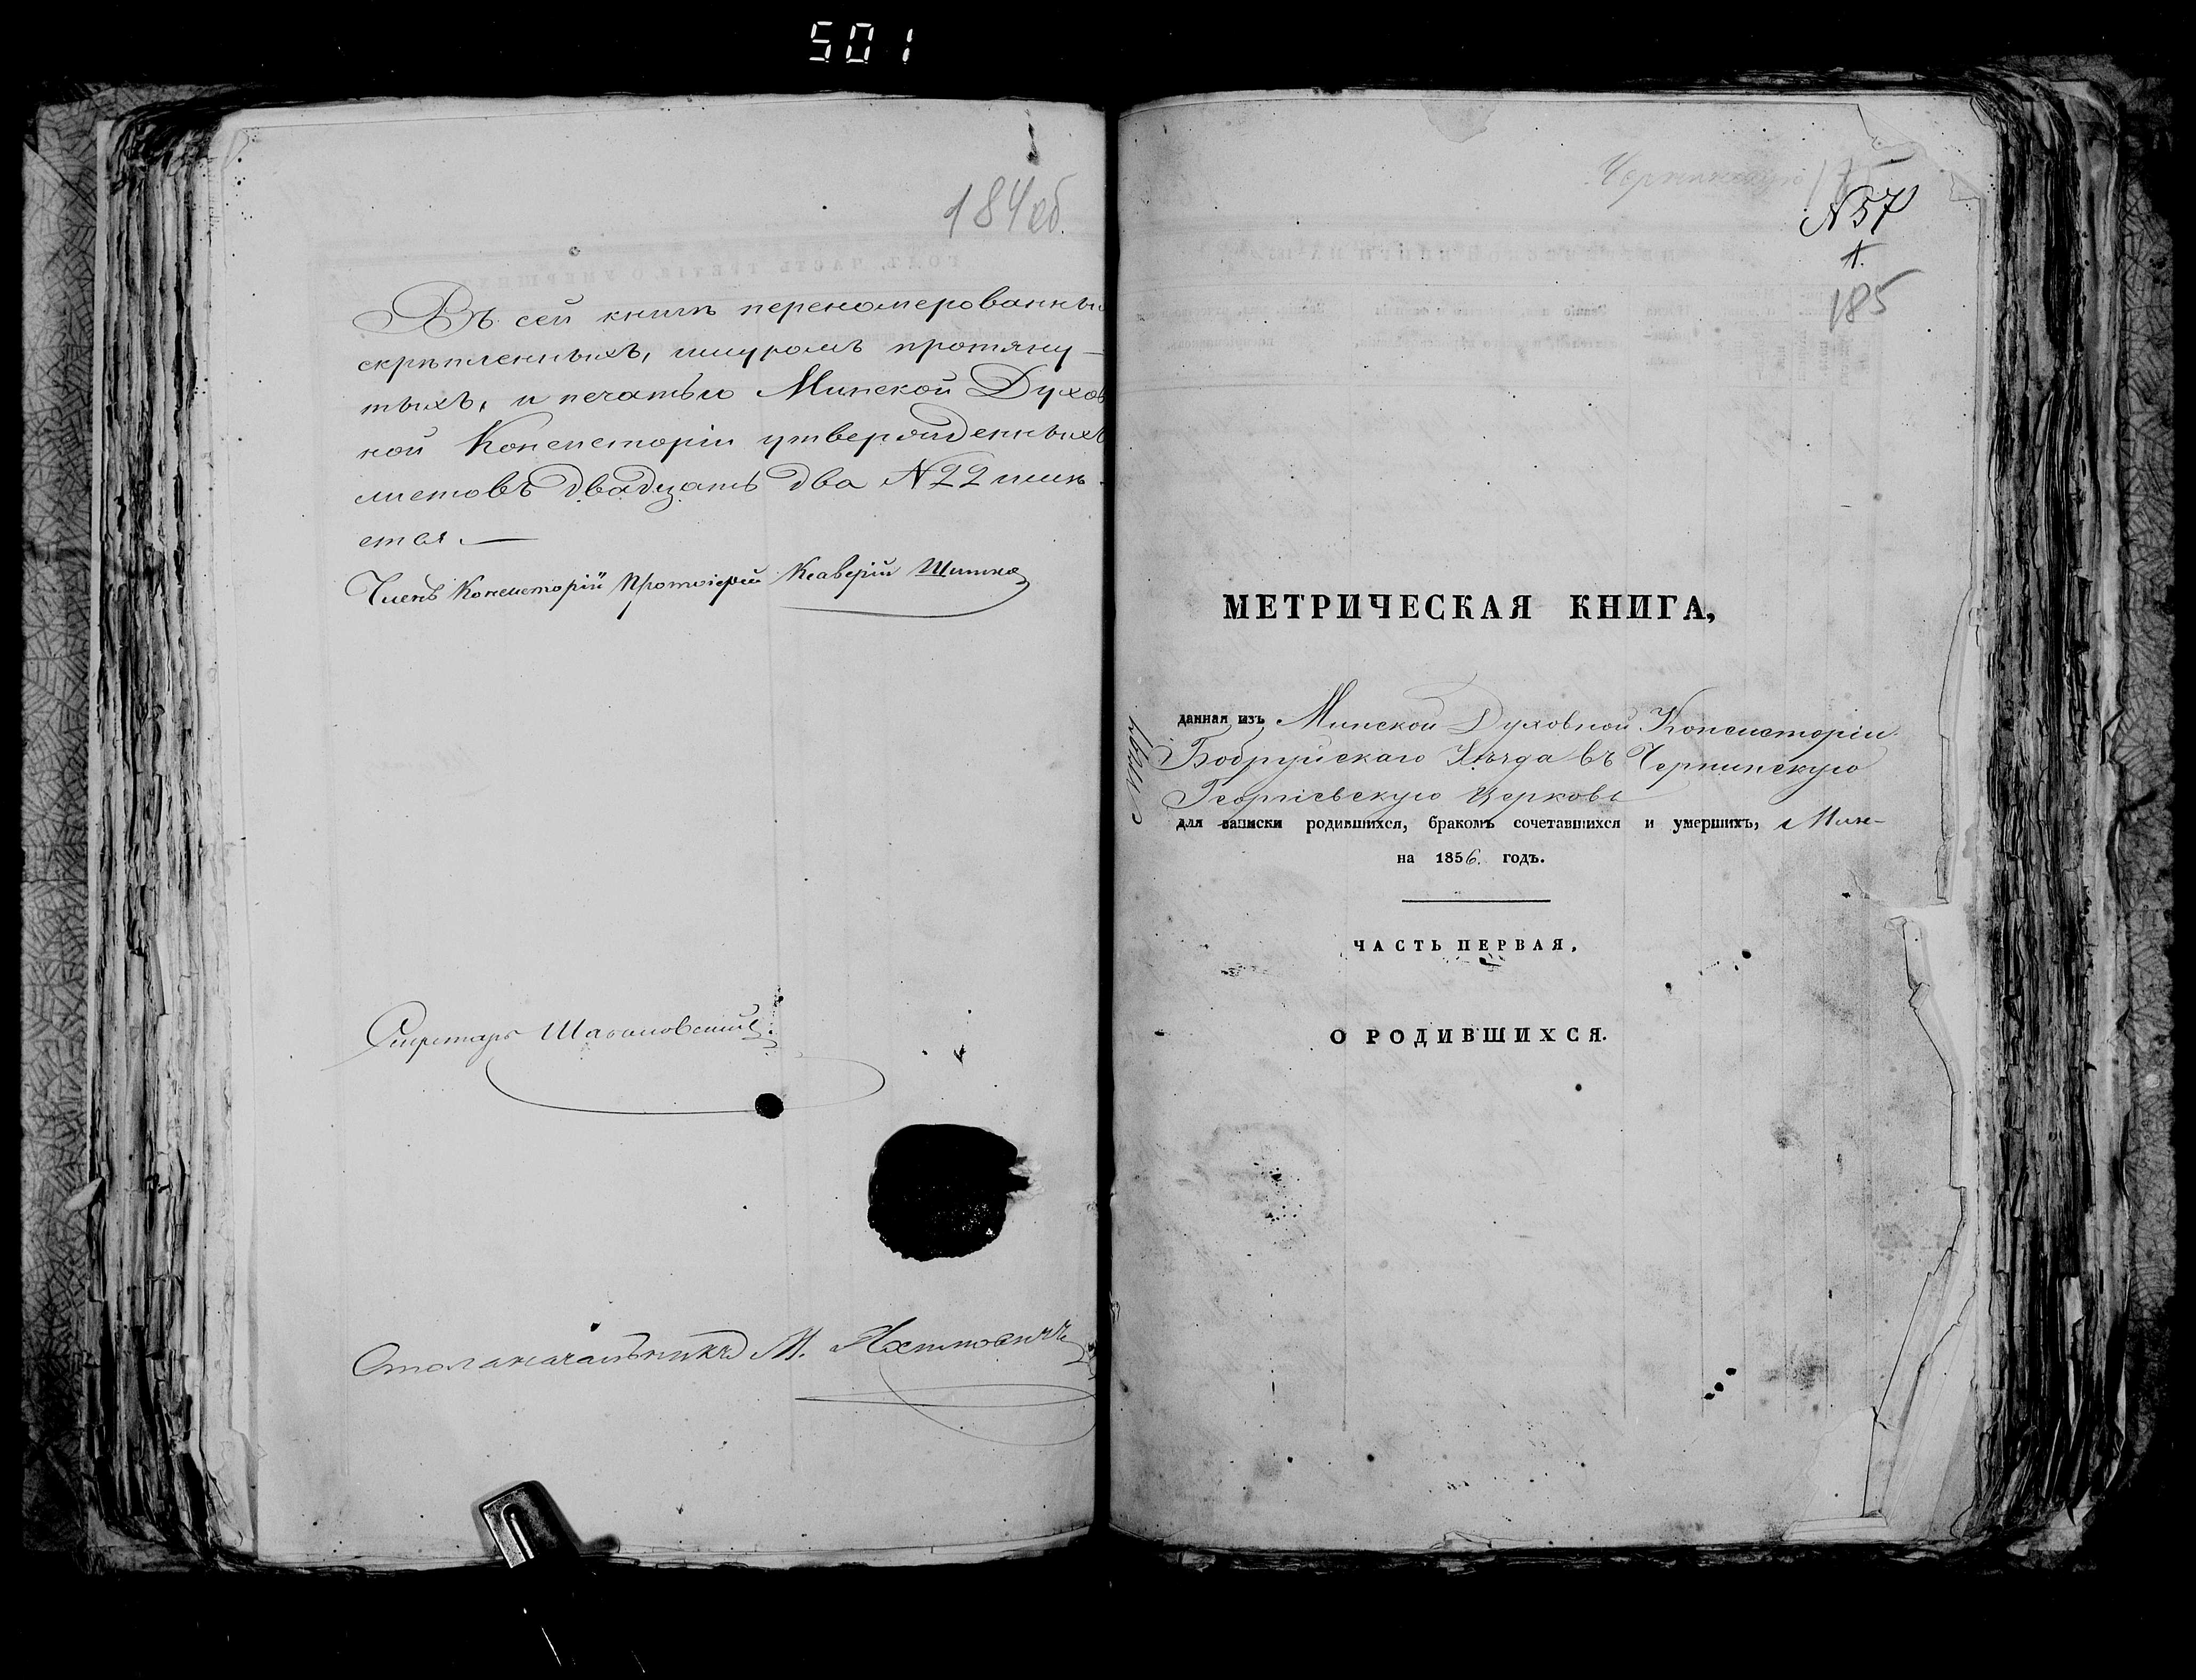 501
184 об.
Въ сей книгѣ переномерованны
скрѣпленныхъ, шнуромъ протяну-
тыхъ, и печатью Минской Духов
ной Консисторіи утвержденныхъ
листовъ двадцать два N 22 имѣ
ется.—
Членъ Консисторіи Протоіерей Ксаверій
Секретарь
Столоначальникъ М.
N 57
1.
185
МЕТРИЧЕСКАЯ КНИГА,
данная изъ Минской Духовной Консисторіи
Бобруйскаго Уѣзда въ Чернинскую
Георгіевскую Церковь
для записки родившихся, бракомъ сочетавшихся и умершихъ,
на 1856. годъ.
ЧАСТЬ ПЕРВАЯ,
О РОДИВШИХСЯ.